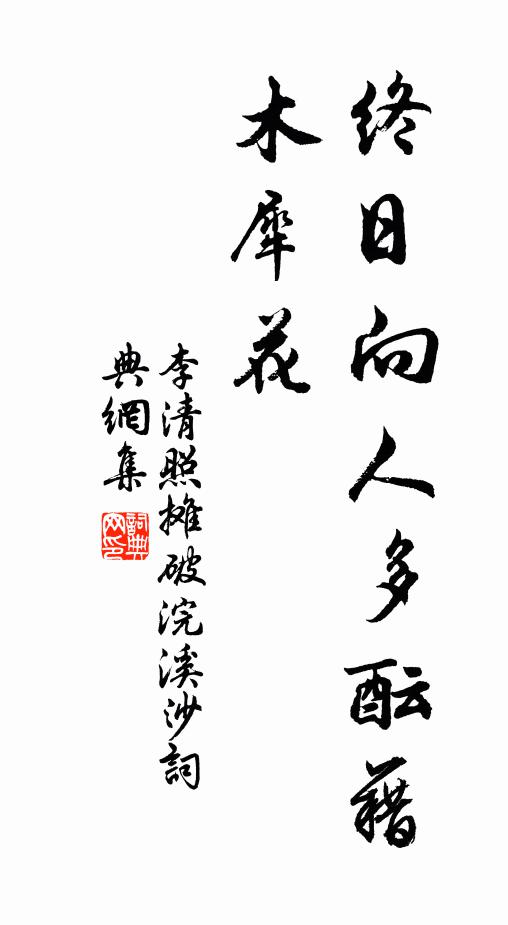 終日向人多酝藉
木犀花
李清照攤破浣溪沙詞
典網集
詞典网印